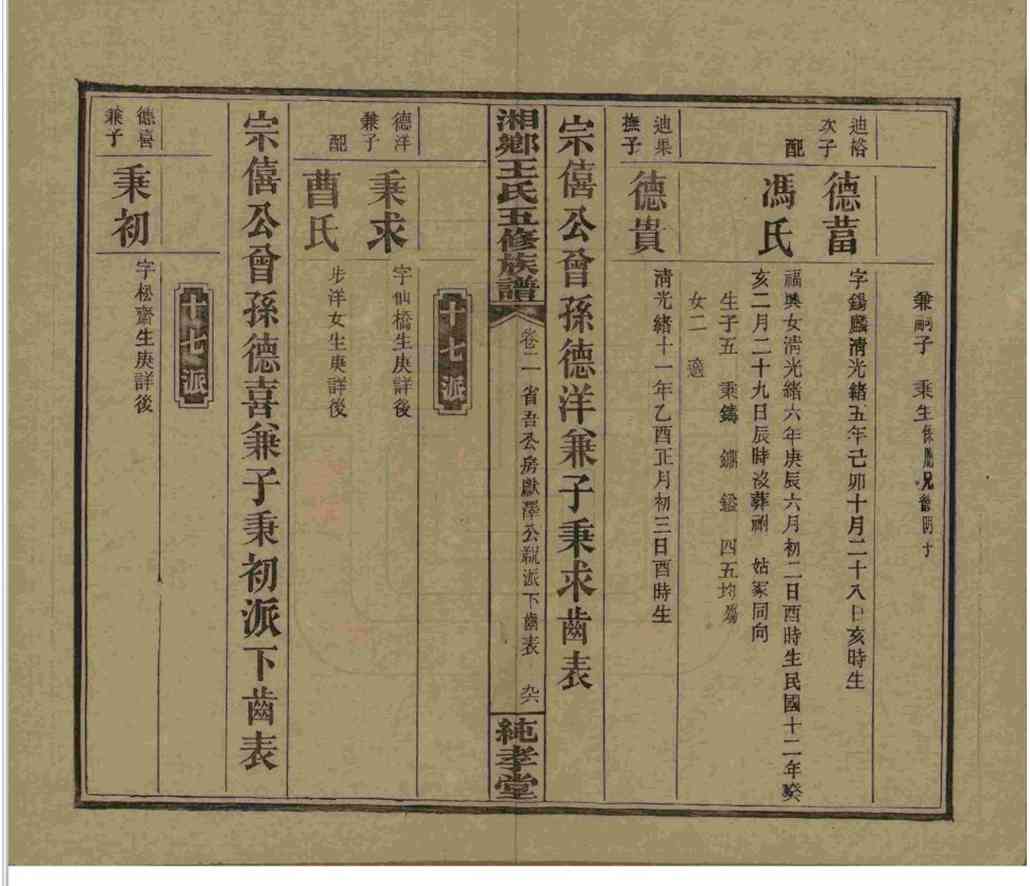 兼嗣子 秉生
迪裕次子 德葍 字錫麟清光緒五年己卯十月二十八日亥時生
配 馮氏 福興女清光緒六年庚辰六月初二日酉時生民國十二年癸
亥二月二十九日辰時沒葬祔 姑冢同向
生子五 秉鑄 鑣 鎰 四五均殤
女二 適
迪果撫子 德貴 清光緒十一年乙酉正月初三日酉時生
宗僖公曾孫德洋兼子秉求齒表
湘鄉王氏五修族譜 卷二 省吾公房獻澤公 派下齒表 純孝堂
十七派
德洋兼子 秉求 字仙橋生庚詳後
配 曹氏 步洋女生庚詳後
宗僖公曾孫德喜兼子秉初派下齒表
十七派
德喜兼子 秉初 字松齋生庚詳後